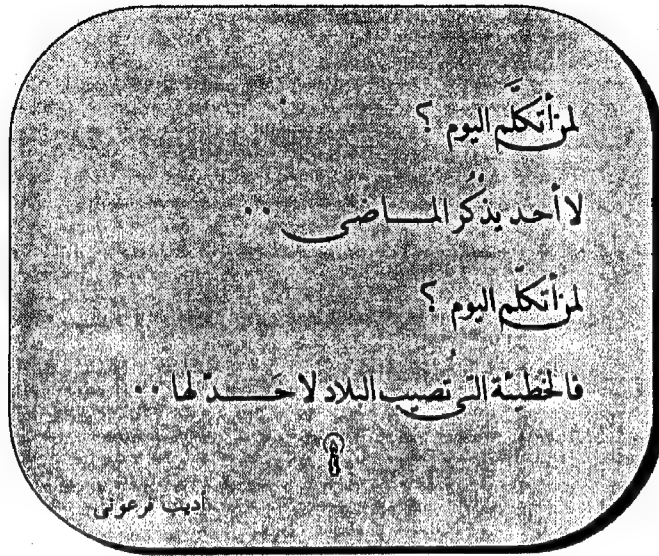 لمن أتكلَّم اليوم ؟
لا أحد يذْكُر المـــاضى ..
لمن أتكلّم اليوم ؟
فالخطيئة التى تُصيب البلاد لا حَـــدّ لها ..
أديب فرعونى